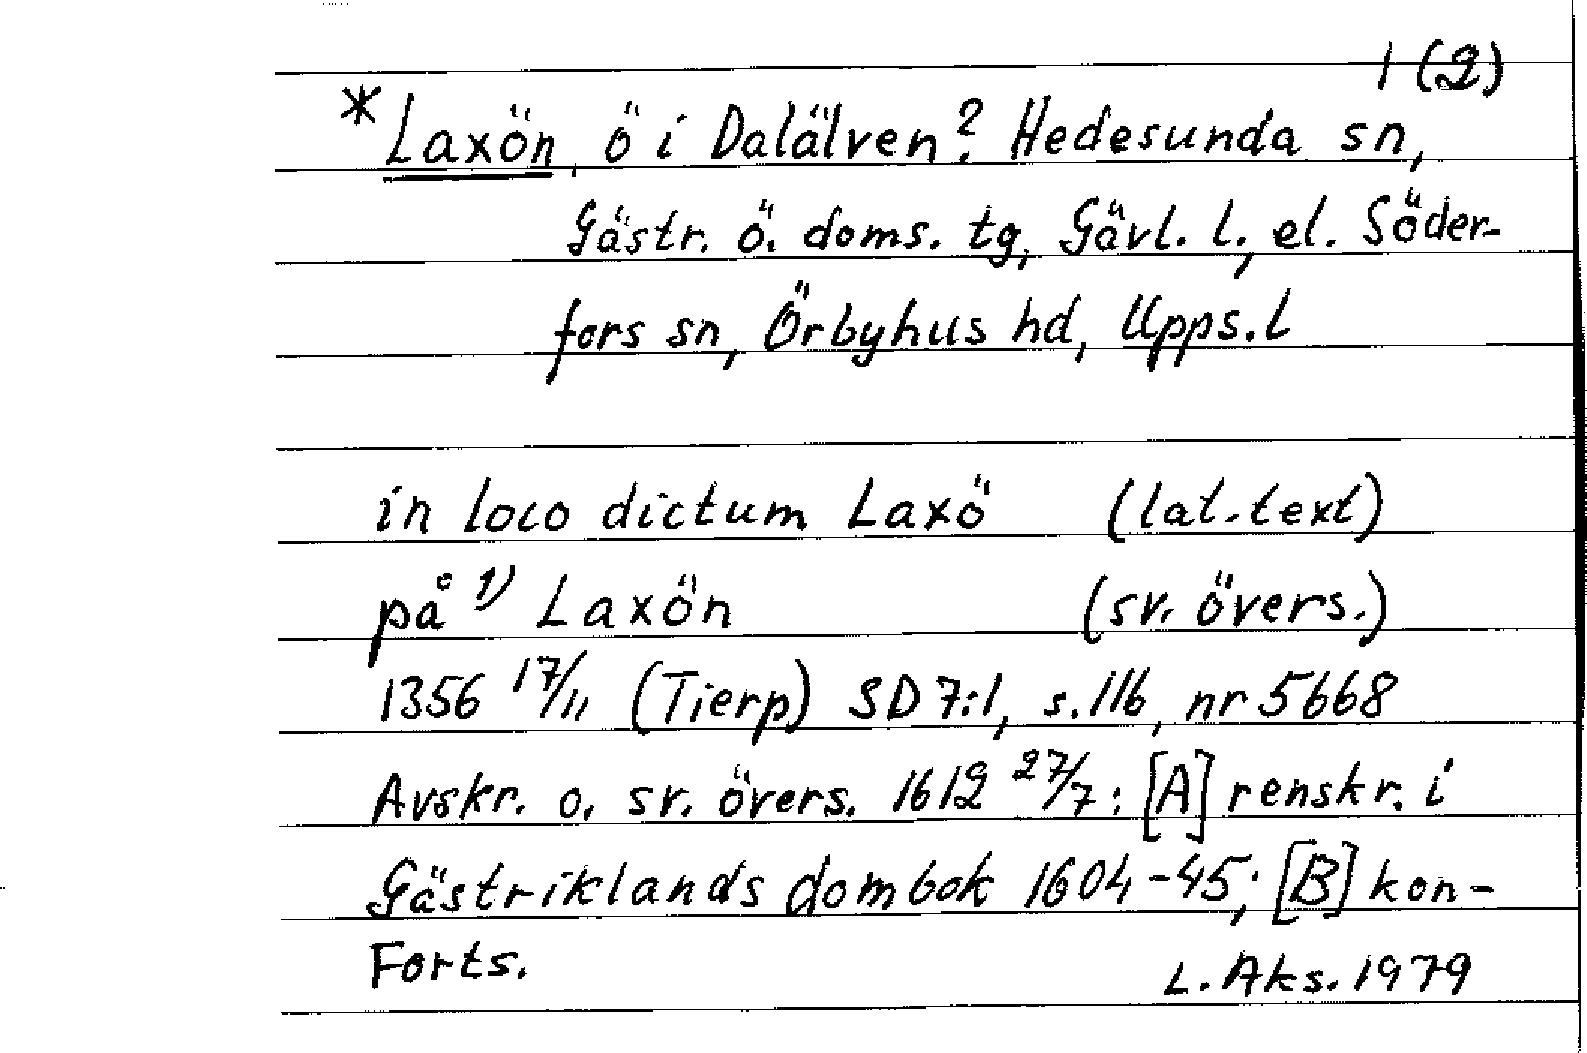 1 (2)
*Laxön, ö i Dalälven? Hedesunda sn,
Gästr. ö. doms. tg, Gävl. l., el. Söder-
fors sn, Örbyhus hd, Upps. l
in loco dictum Laxö (lat. text)
på 1) Laxön (sv. övers.)
1356 17/11 (Tierp) SD 7:1, s. 116, nr 5668
Avskr. o. sv. övers. 1612 27/7: [A] renskr. i
Gästriklands dombok 1604-45; [B] kon-
Forts. L. Aks. 1979